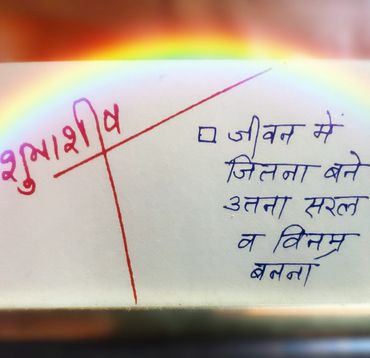 शुभाशीष
जीवन में
जितना बने
उतना सरल
व विनम्र
बनना